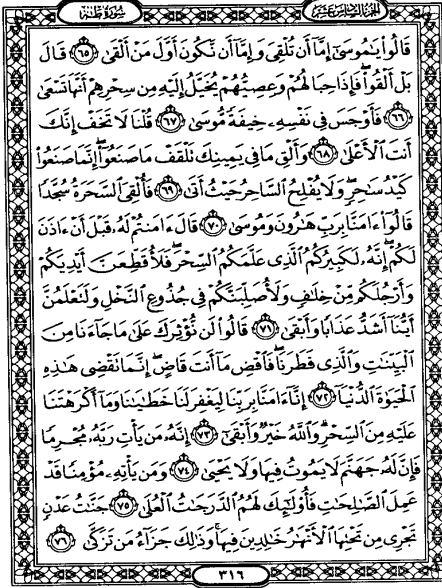 الجزء السادس عشر
سورة طه
قَالُواْ يَٰمُوسَىٰٓ إِمَّآ أَن تُلْقِىَ وَإِمَّآ أَن نَّكُونَ أَوَّلَ مَنْ أَلْقَىٰ ٦٥ قَالَ
بَلْ أَلْقُواْ ۖ فَإِذَا حِبَالُهُمْ وَعِصِيُّهُمْ يُخَيَّلُ إِلَيْهِ مِن سِحْرِهِمْ أَنَّهَا تَسْعَىٰ
٦٦ فَأَوْجَسَ فِى نَفْسِهِۦ خِيفَةً مُّوسَىٰ ٦٧ قُلْنَا لَا تَخَفْ إِنَّكَ
أَنتَ ٱلْأَعْلَىٰ ٦٨ وَأَلْقِ مَا فِى يَمِينِكَ تَلْقَفْ مَا صَنَعُوٓاْ ۖ إِنَّمَا صَنَعُواْ
كَيْدُ سَٰحِرٍ ۖ وَلَا يُفْلِحُ ٱلسَّاحِرُ حَيْثُ أَتَىٰ ٦٩ فَأُلْقِىَ ٱلسَّحَرَةُ سُجَّدًا
قَالُوٓاْ ءَامَنَّا بِرَبِّ هَٰرُونَ وَمُوسَىٰ ٧٠ قَالَ ءَامَنتُمْ لَهُۥ قَبْلَ أَنْ ءَاذَنَ
لَكُمْ ۖ إِنَّهُۥ لَكَبِيرُكُمُ ٱلَّذِى عَلَّمَكُمُ ٱلسِّحْرَ ۖ فَلَأُقَطِّعَنَّ أَيْدِيَكُمْ
وَأَرْجُلَكُم مِّنْ خِلَٰفٍ وَلَأُصَلِّبَنَّكُمْ فِى جُذُوعِ ٱلنَّخْلِ وَلَتَعْلَمُنَّ
أَيُّنَآ أَشَدُّ عَذَابًا وَأَبْقَىٰ ٧١ قَالُواْ لَن نُّؤْثِرَكَ عَلَىٰ مَا جَآءَنَا مِنَ
ٱلْبَيِّنَٰتِ وَٱلَّذِى فَطَرَنَا ۖ فَٱقْضِ مَآ أَنتَ قَاضٍ ۖ إِنَّمَا تَقْضِى هَٰذِهِ
ٱلْحَيَوٰةَ ٱلدُّنْيَآ ٧٢ إِنَّآ ءَامَنَّا بِرَبِّنَا لِيَغْفِرَ لَنَا خَطَٰيَٰنَا وَمَآ أَكْرَهْتَنَا
عَلَيْهِ مِنَ ٱلسِّحْرِ ۗ وَٱللَّهُ خَيْرٌ وَأَبْقَىٰٓ ٧٣ إِنَّهُۥ مَن يَأْتِ رَبَّهُۥ مُجْرِمًا
فَإِنَّ لَهُۥ جَهَنَّمَ لَا يَمُوتُ فِيهَا وَلَا يَحْيَىٰ ٧٤ وَمَن يَأْتِهِۦ مُؤْمِنًا قَدْ
عَمِلَ ٱلصَّٰلِحَٰتِ فَأُوْلَٰٓئِكَ لَهُمُ ٱلدَّرَجَٰتُ ٱلْعُلَىٰ ٧٥ جَنَّٰتُ عَدْنٍ
تَجْرِى مِن تَحْتِهَا ٱلْأَنْهَٰرُ خَٰلِدِينَ فِيهَا ۚ وَذَٰلِكَ جَزَآءُ مَن تَزَكَّىٰ ٧٦
٣١٦